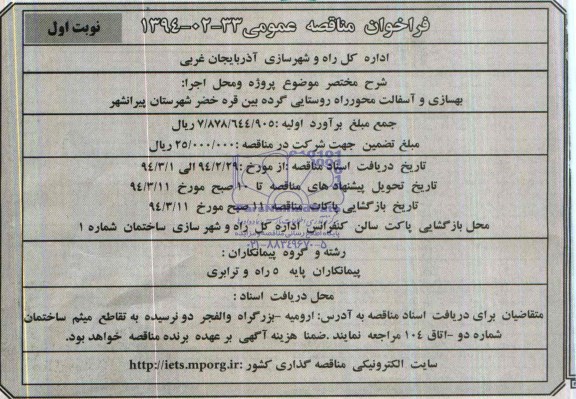 فراخوان مناقصه عمومی ۳۳-۰۲-۱۳۹۴
نوبت اول
اداره کل راه و شهرسازی آذربایجان غربی
شرح مختصر موضوع پروژه ومحل اجرا:
بهسازی و آسفالت محورراه روستایی گرده بین قره خضر شهرستان پیرانشهر
جمع مبلغ برآورد اولیه :۷/۸۷۸/۶۴۴/۹۰۵ ریال
مبلغ تضمین جهت شرکت در مناقصه :۲۵/۰۰۰/۰۰۰ ریال
تاریخ دریافت اسناد مناقصه :از مورخ :۹۴/۲/۲۹ الی ۹۴/۳/۱
تاریخ تحویل پیشنهاد های مناقصه تا ۱۰ صبح مورخ ۹۴/۳/۱۱
تاریخ بازگشایی پاکات مناقصه ۱۱ صبح مورخ ۹۴/۳/۱۱
محل بازگشایی پاکت سالن کنفرانس اداره کل راه و شهر سازی ساختمان شماره ۱
۰۲۱-۸۸۳۴۹۶۷۰-۵
رشته و گروه پیمانکاران :
پیمانکاران پایه ۵ راه و ترابری
محل دریافت اسناد :
متقاضیان برای دریافت اسناد مناقصه به آدرس: ارومیه -بزرگراه والفجر دو نرسیده به تقاطع میثم ساختمان
شماره دو -اتاق ۱۰۴ مراجعه نمایند .ضمنا هزینه آگهی بر عهده برنده مناقصه خواهد بود.
سایت الکترونیکی مناقصه گذاری کشور :http://iets.mporg.ir